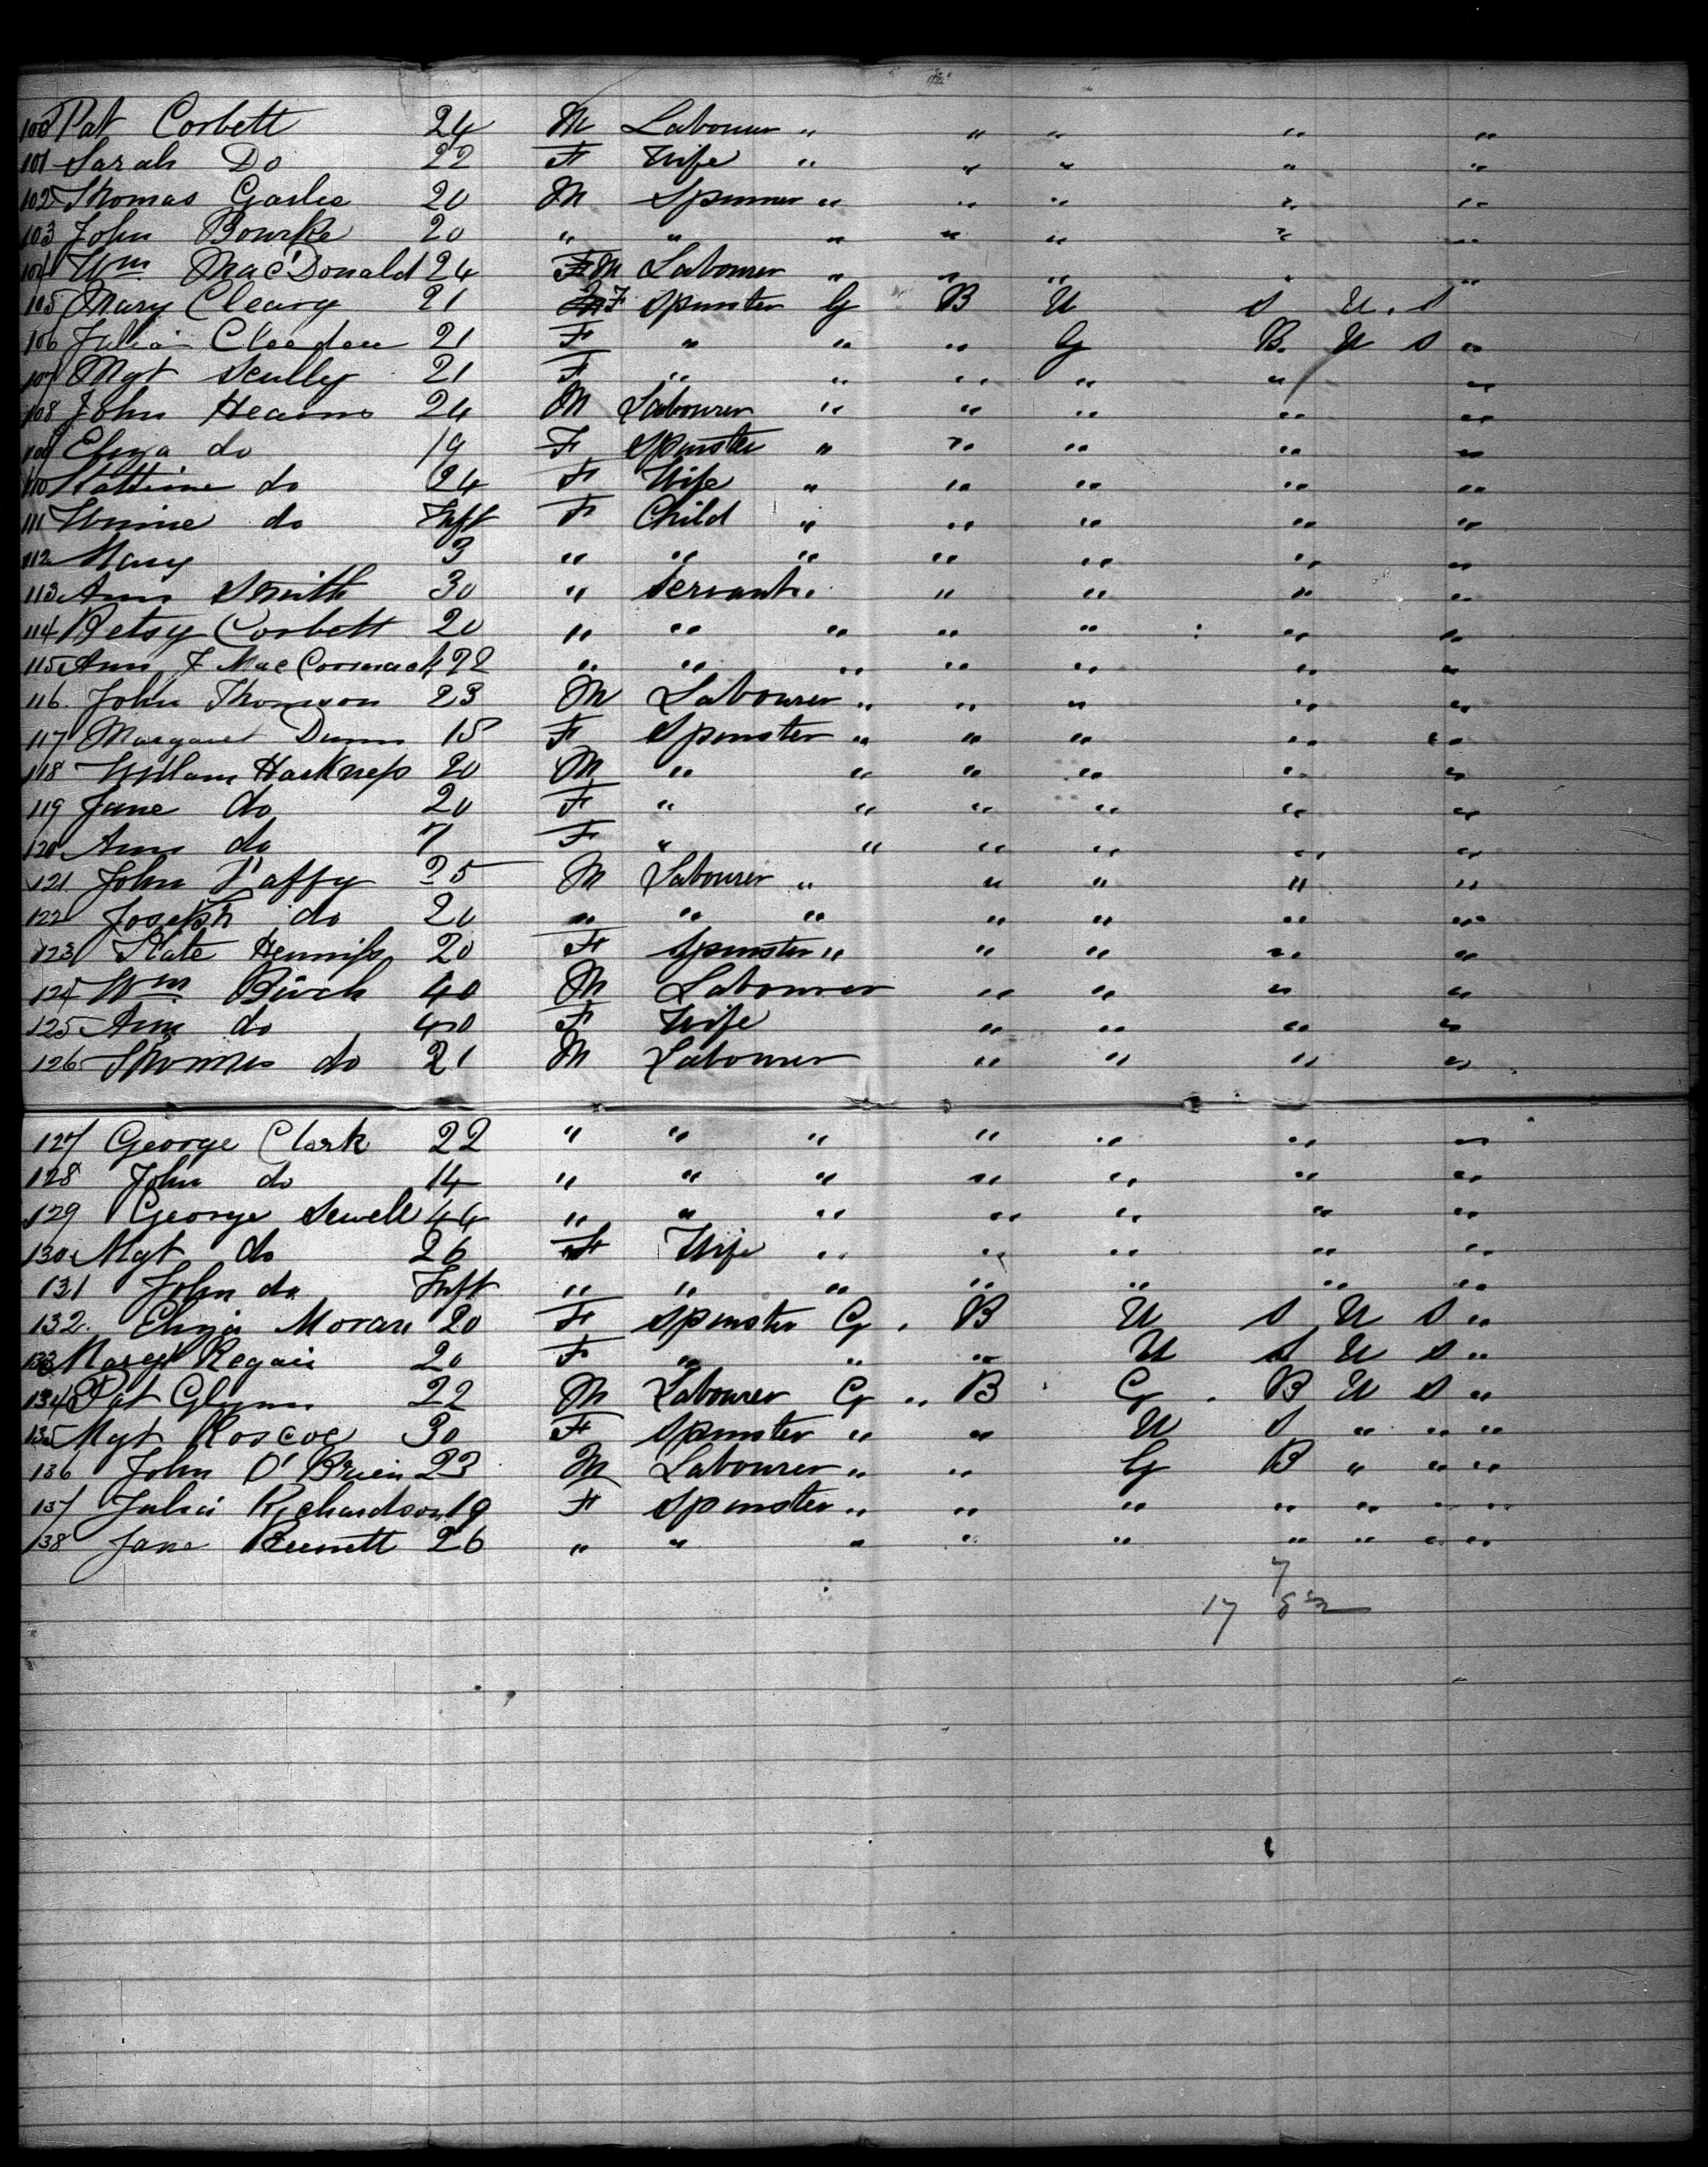 100 Pat Corbett 24 M Labourer " " " " "
101 Sarah Do 22 F Wife " " " " "
102 Thomas Garlie 20 M Spinner " " " " "
103 John Bourke 20 " " " " " " "
104 Wm MacDonald 24 F M Labourer " " " " "
105 Mary Cleary 21 M F Spinster G B U S U. S "
106 Julia 21 F " " " G B. U S "
107 Mgt Scully 21 F " " " " " "
108 John Hearns 24 M Labourer " " " " "
109 Eliza do 19 F Spinster " " " " "
110 do 24 F Wife " " " " "
111 Winnie do Inft F Child " " " " "
112 Mary 3 " " " " " " "
113 Ann Smith 30 " Servant " " " " "
114 Betsy Corbett 20 " " " " " " "
115 Ann J MacCormack 22 " " " " " " "
116. John Thomson 23 M Labourer " " " " "
117 Margaret Dunn 15 F Spinster " " " " "
118 William Harkness 20 M " " " " " "
119 Jane do 20 F " " " " " "
120 Ann do 7 F " " " " " "
121 John Taffy 25 M Labourer " " " " "
122 Joseph do 20 " " " " " " "
123 Kate Henniss 20 F Spinster " " " " "
124 Wm Birch 40 M Labourer " " " "
125 Ann do 40 F Wife " " " "
126 Thomas do 21 M Labourer " " " "
127 George Clark 22 " " " " " " "
128 John do 14 " " " " " " "
129 George Sewell 44 " " " " " " "
130 Mgt do 26 F Wife " " " " "
131 John do Inft " " " " " " "
132. Eliza Moran 20 F Spinster G. B U S U S "
133 Regain 20 F " " " U S U S "
134 Pat Glynn 22 M Labourer G " B G. B U S "
135 Mgt Roscoe 30 F Spinster " " U S " " "
136 John O'Brien 23 M Labourer " " G B " " "
137 Julia Richardson 19 F Spinster " " " " " " "
138 Jane Bennett 26 " " " " " " " " "
7
17